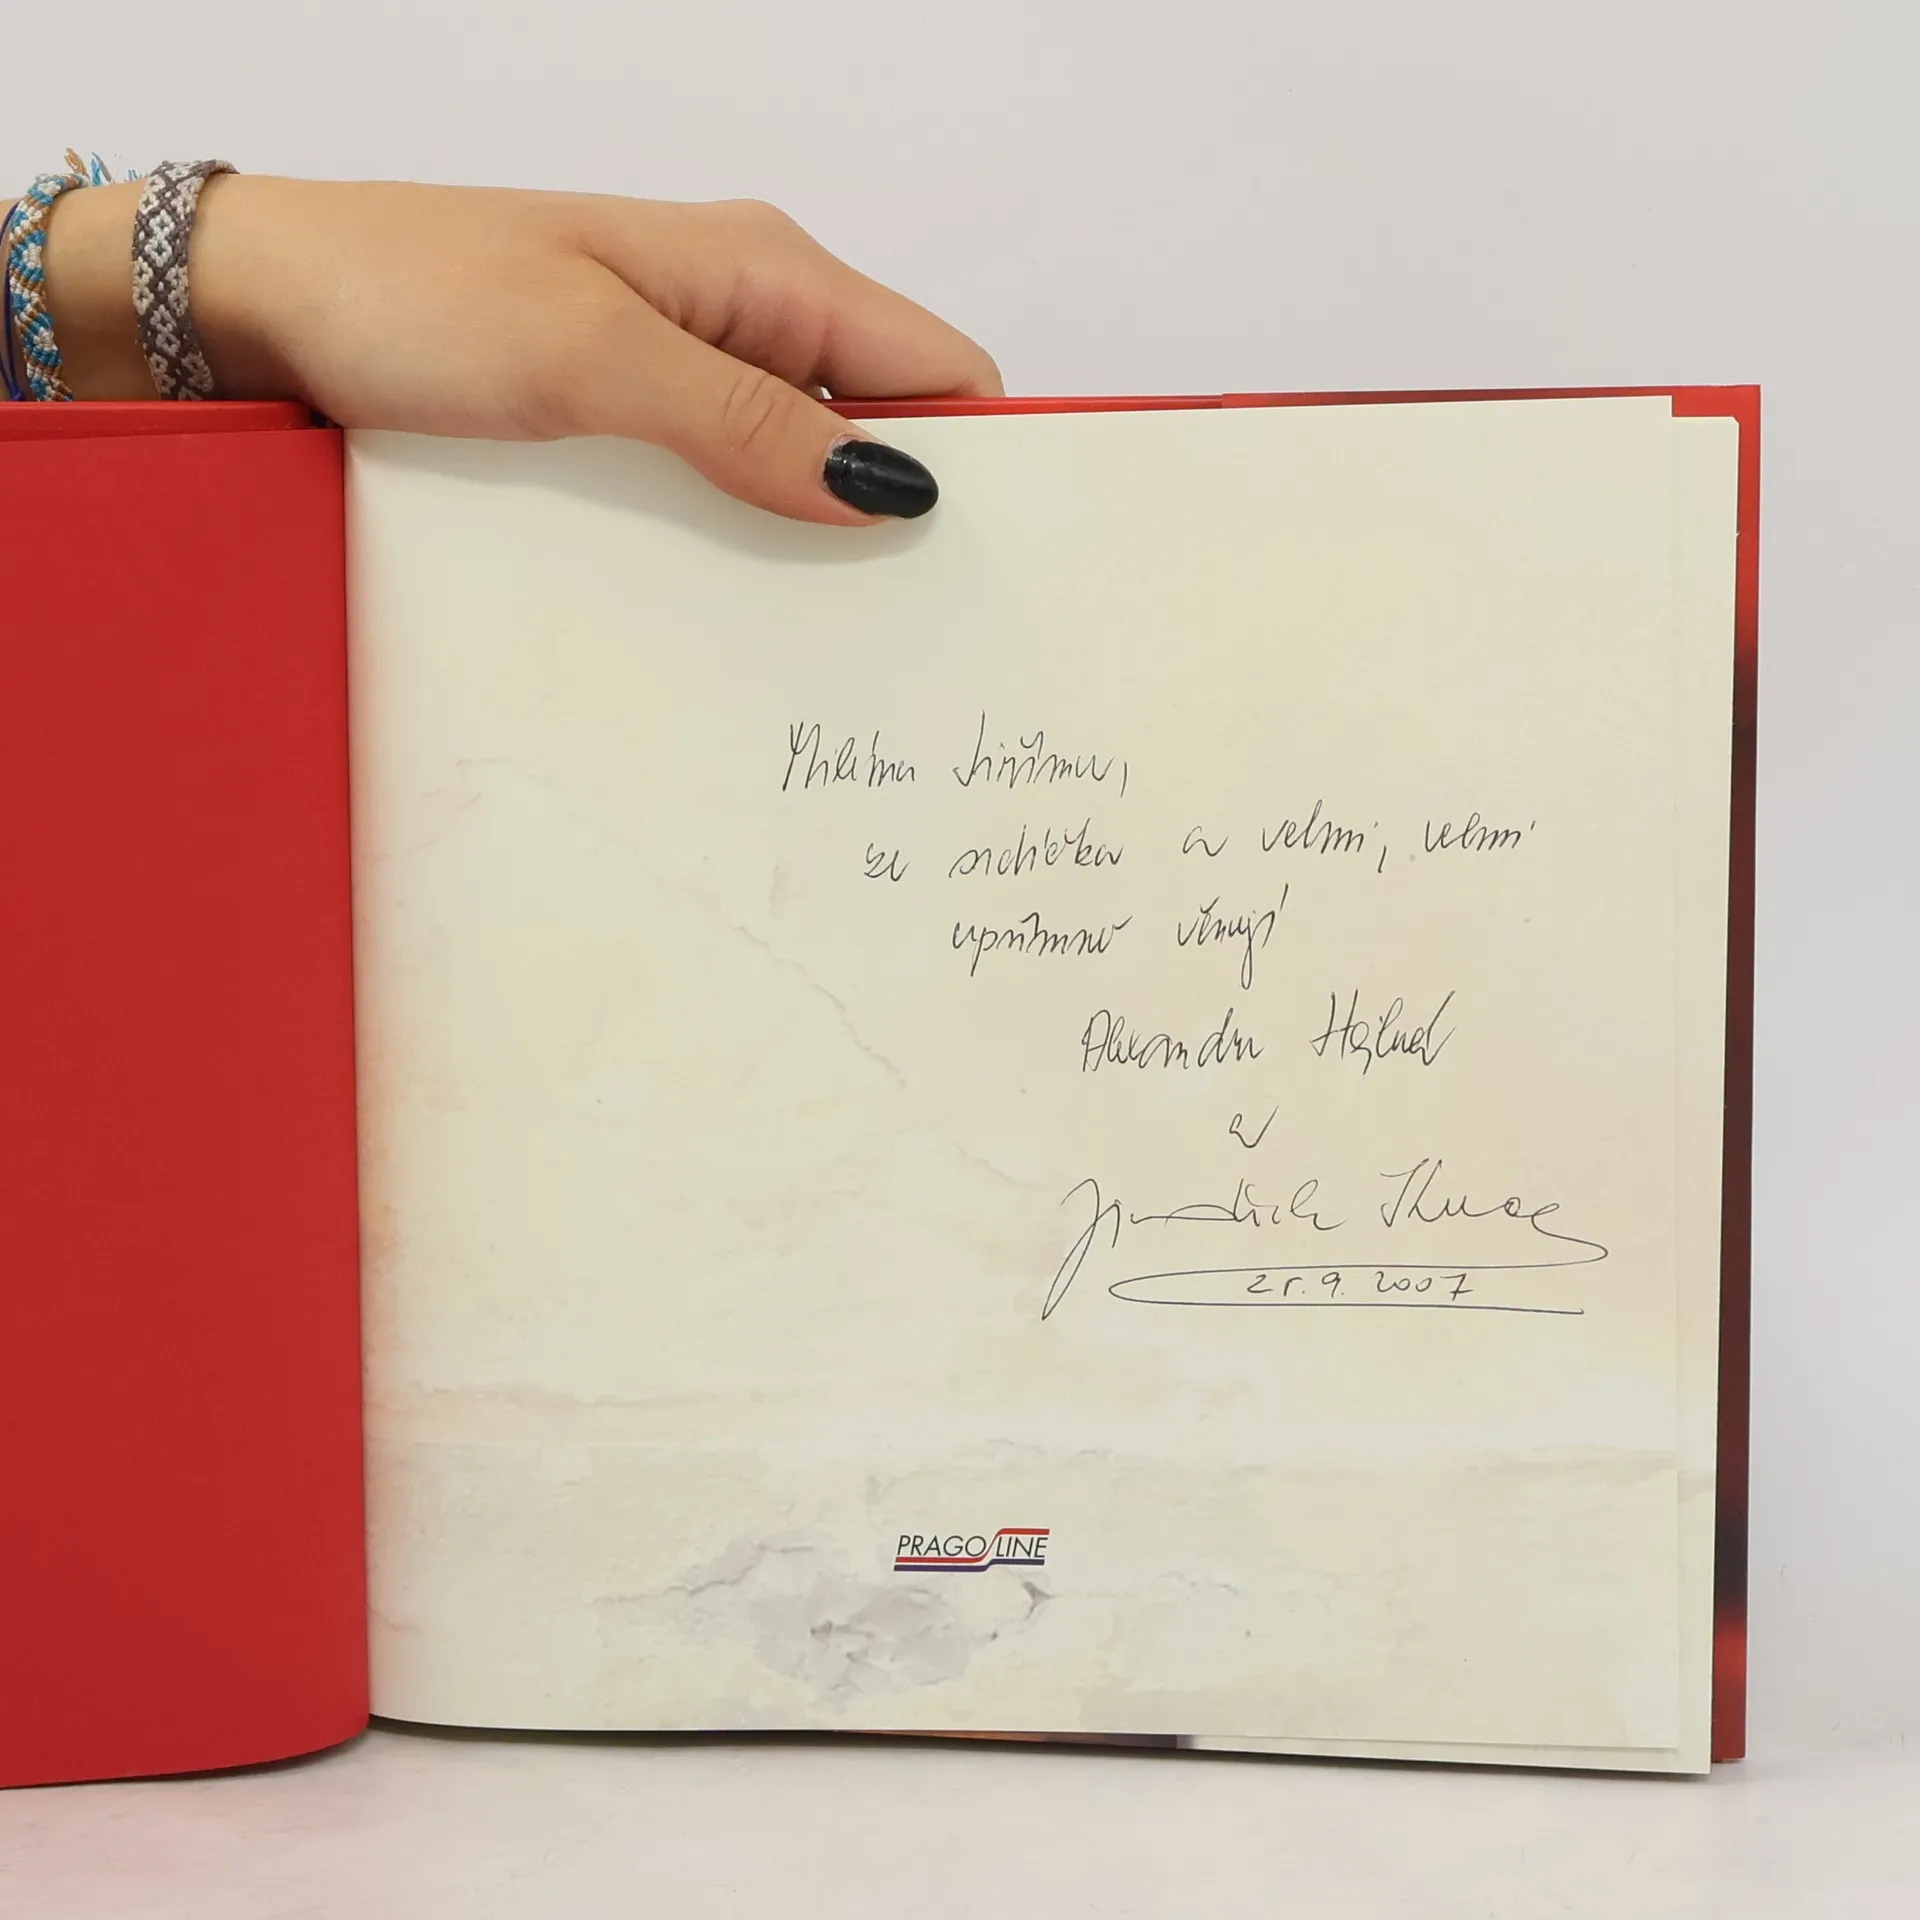 Milému Jiřímu,
ze srdíčka a velmi, velmi
upřímně věnují
Alexandr Hejlual
a
Jindřich
25. 9. 2007
PRAGOLINE